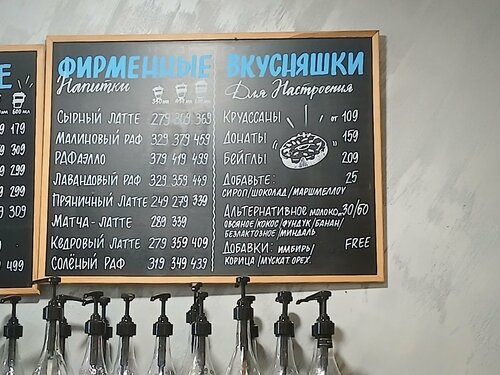 Е
600 мл
179
199
299
299
309
499
ФИРМЕННЫЕ
Напитки
СЫРНЫЙ ЛАТТЕ 279 309 369
МАЛИНОВЫЙ РАФ 329 379 459
РАФАЭЛЛО 379 419 499
ЛАВАНДОВЫЙ РАФ 329 359 449
ПРЯНИЧНЫЙ ЛАТТЕ 249 279 339
МАТЧА-ЛАТТЕ 289 339
КЕДРОВЫЙ ЛАТТЕ 279 359 409
СОЛЁНЫЙ РАФ 319 349 439
ВКУСНЯШКИ
Для Настроения
КРУАССАНЫ от 109
ДОНАТЫ 159
БЕЙГЛЫ 209
ДОБАВЬТЕ: 25
СИРОП/ШОКОЛАД/МАРШМЕЛЛОУ
АЛЬТЕРНАТИВНОЕ МОЛОКО 30/60
ОВСЯНОЕ/КОКОС/ФУНДУК/БАНАН/
БЕЗЛАКТОЗНОЕ/МИНДАЛЬ
ДОБАВКИ: ИМБИРЬ/ FREE
КОРИЦА/МУСКАТ.ОРЕХ.